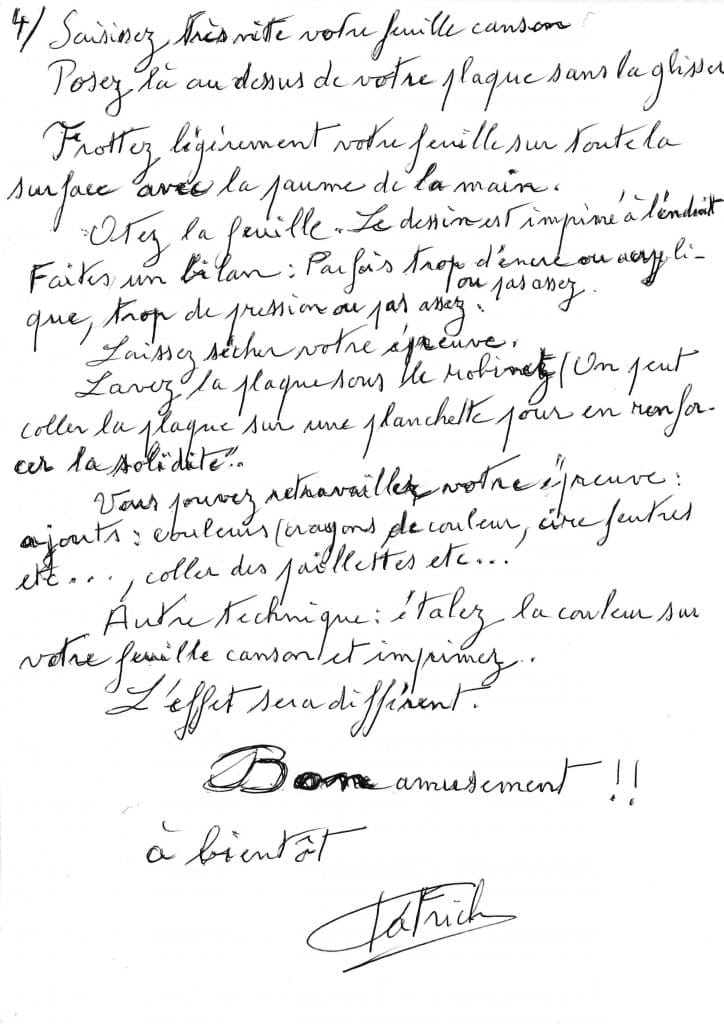 4/ Saisissez très vite votre feuille canson
Posez là au dessus de votre plaque sans la glisser
Frottez légèrement votre feuille sur toute la
surface avec la paume de la main.
Otez la feuille. Le dessin est imprimé à l'endroit
Faites un bilan : Parfois trop d'encre ou acryli-
ou pas assez.
que, trop de pression ou pas assez.
Laissez sécher votre épreuve.
Lavez la plaque sous le robinet (On peut
coller la plaque sur une planchette pour en renfor-
cer la solidité..
Vous pouvez retravailler votre épreuve :
ajouts : couleurs (crayons de couleur, cire feutres
etc...., coller des paillettes etc...
Autre technique : étalez la couleur sur
votre feuille canson et imprimez..
L'effet sera différent.
Bon amusement !!
à bientôt
Patrick